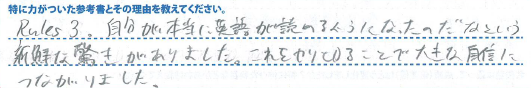 特に力がついた参考書とその理由を教えてください。
Rules 3。自分が本当に英語が読めるようになったのだなという
新鮮な驚きがありました。これをやりきることで大きな自信に
つながりました。